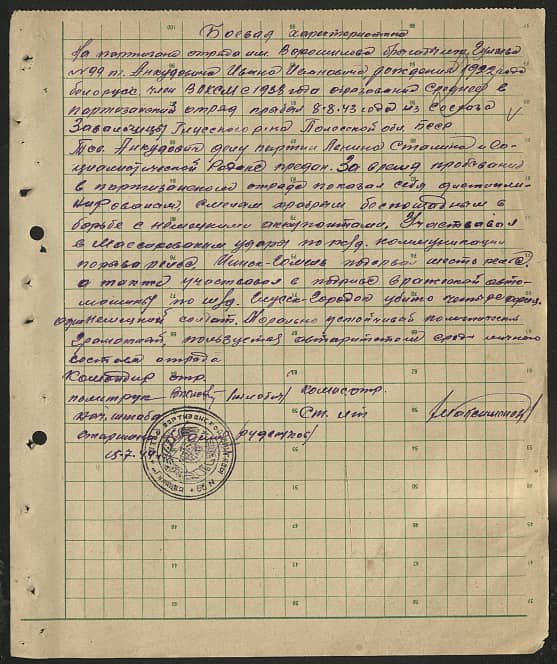 Боевая характеристика
На партизана отряда им. Ворошилова бригады им.
№ 99 т. Анкудовича Ивана Ивановича рождения 1922 года
белорусс член ВЛКСМ с 1938 года образования среднее в
партизанский отряд прибыл 8-8-43 года из
Глусского р-на Полесской обл. БССР
Тов. Анкудович делу партии Ленина Сталина и Со-
циалистической Родине предан. За время пребывания
в партизанского отряда показал себя дисципли-
нированым, смелым храбрым беспощадным в
борьбе с немецкими оккупантами. Участвовал
в массированым ударе по ж/д. коммуникации
подрыв рельс Минск-Гомель подорвал шесть рельс.
а также участвовал в подрыве вражеской авто-
машины по ш/д. Слуск- убито
один немецкой солдат. Морально устойчивый политически
грамотный, пользуется авторитетом среди личного
состава отряда
Командир отр.
политрук комис отр.
нач. штаба ст. л-т
старшина
15-7-44
№ 99